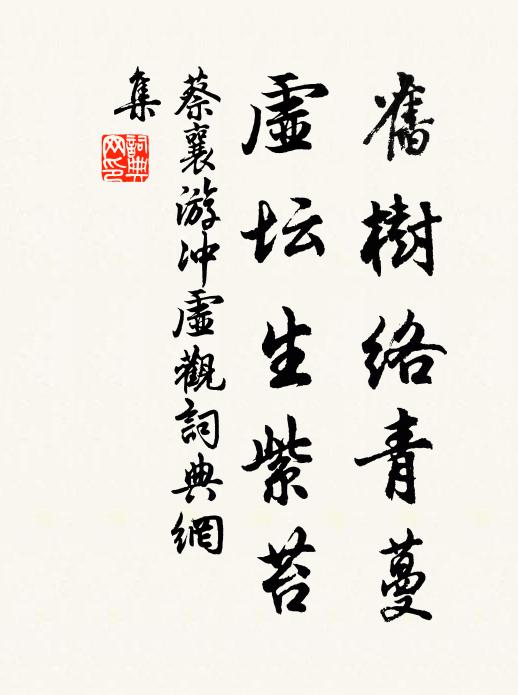 舊樹络青蔓
虛坛生紫苔
蔡襄游冲虛觀詞典網
集
詞典
网印